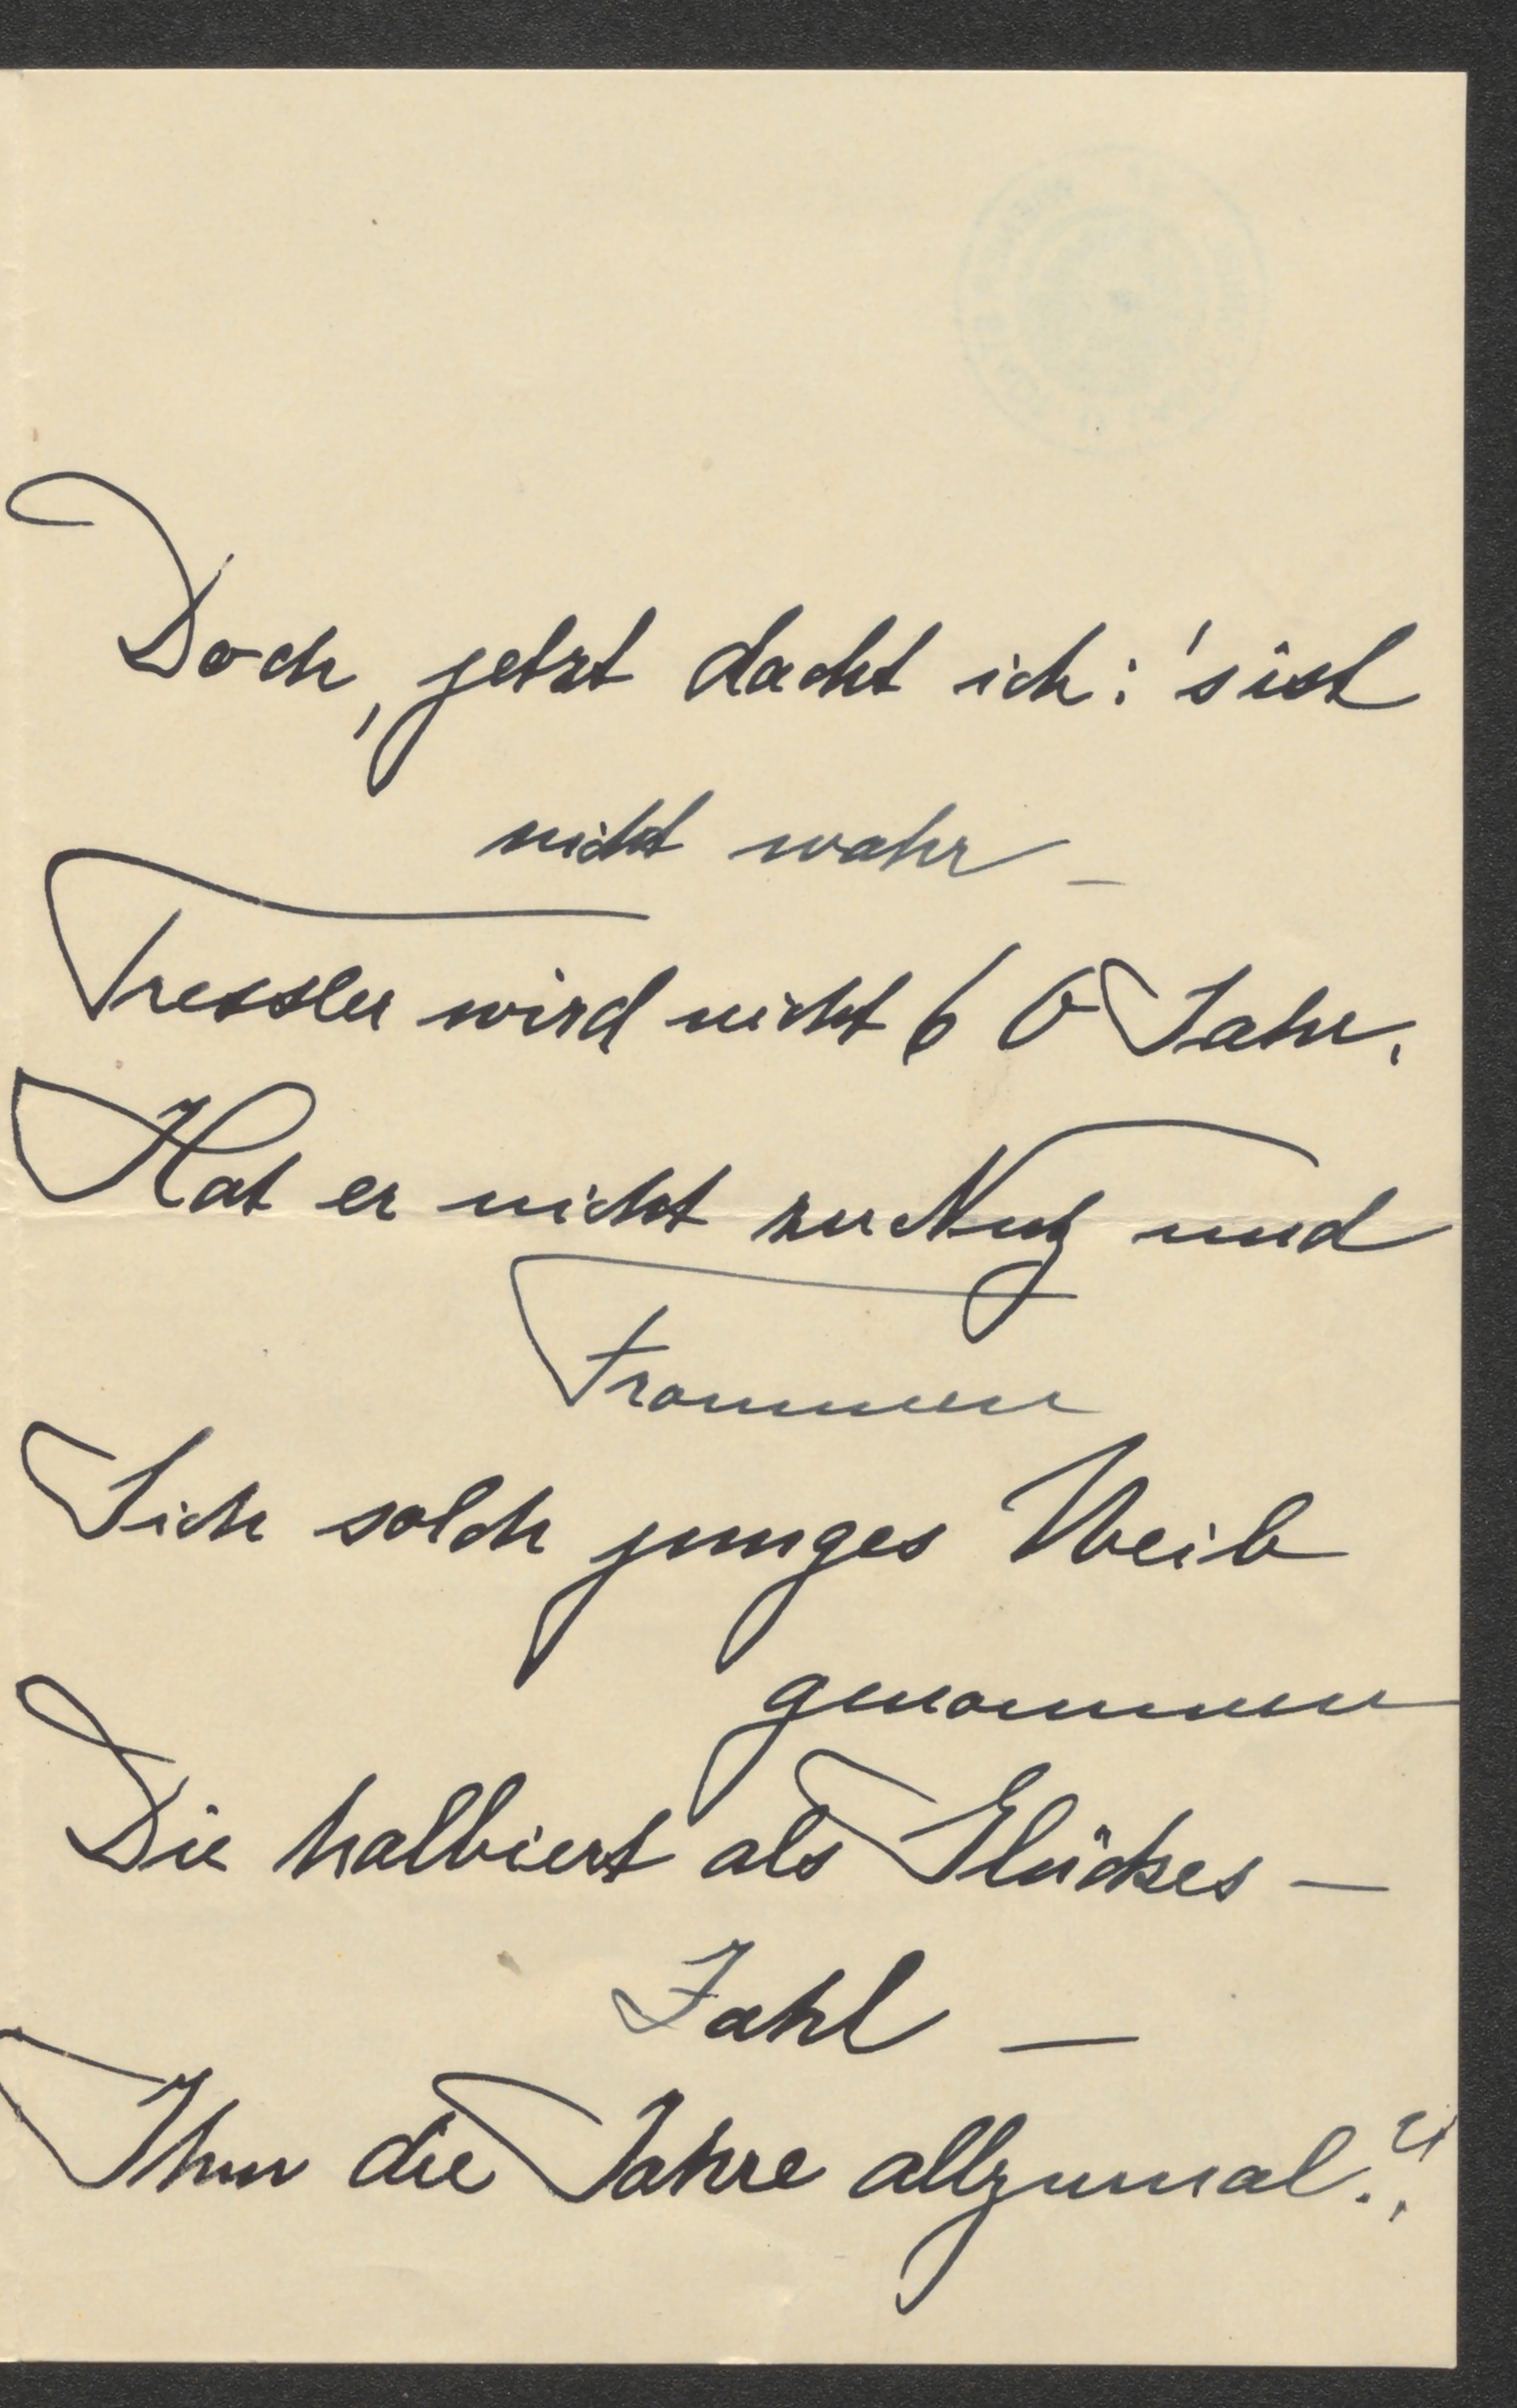 Doch, jetzt dacht ich: 's ist
nicht wahr –
Tressler wird nicht 60 Jahr.
Hat er nicht zu Nutz und
Frommen
Sich solch junges Weib
genommen
Die halbiert als Glückes –
Zahl –
Ihm die Jahre allzumal.?